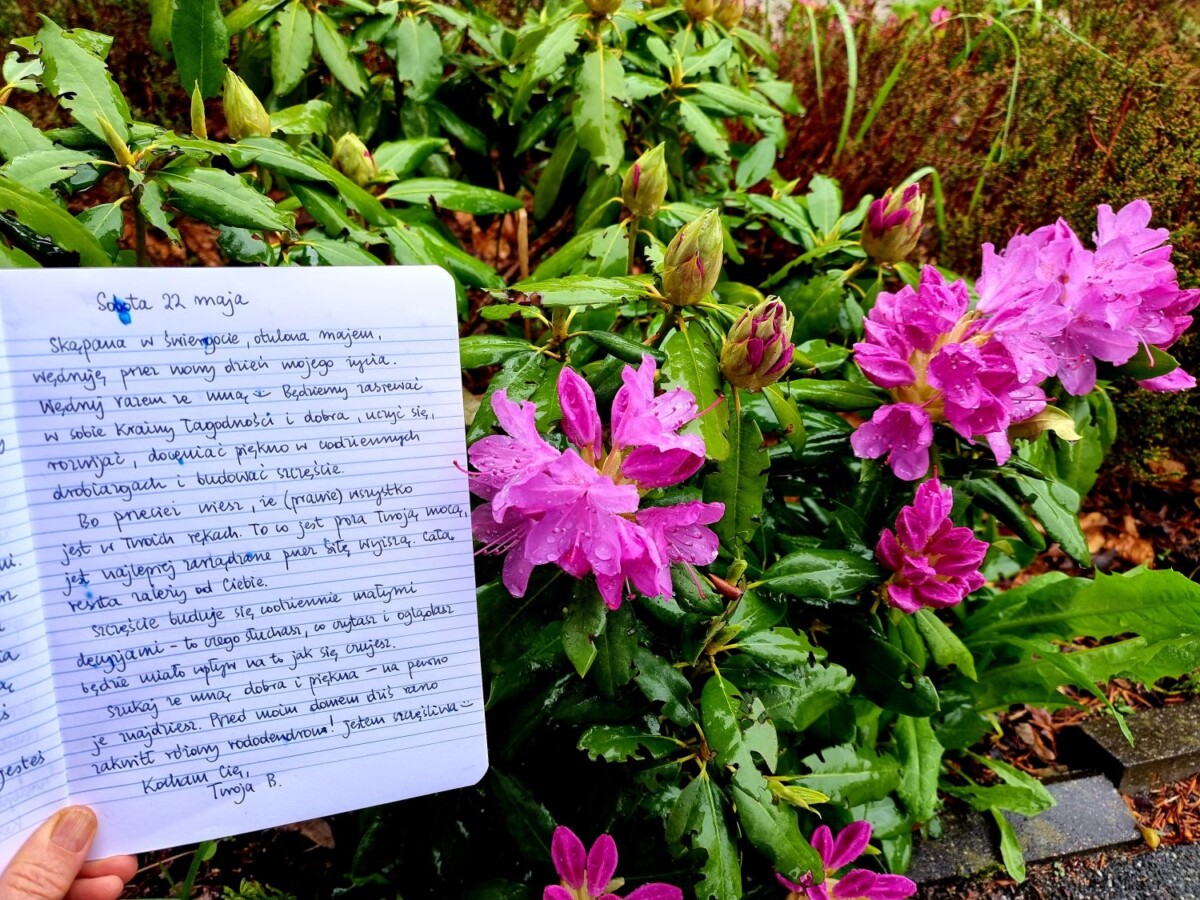 Sobota 22 maja
Skąpana w świergocie, otulona majem,
wędruję przez nowy dzień mojego życia.
Wędruj razem ze mną Będziemy zasiewać
w sobie Krainy Łagodności i dobra, uczyć się,
rozwijać, doceniać piękno w codziennych
drobiazgach i budować szczęście.
Bo przecież wiesz, że (prawie) wszystko
jest w Twoich rękach. To co jest poza Twoją mocą,
jest najlepiej zarządzone przez siłę wyższą. Cała
reszta zależy od Ciebie.
Szczęście buduje się codziennie małymi
decyzjami - to czego słuchasz, co czytasz i oglądasz
będzie miało wpływ na to jak się czujesz.
Szukaj ze mną dobra i piękna - na pewno
je znajdziesz. Przed moim domem dziś rano
zakwitł różowy rododendron! Jestem szczęśliwa
Kocham Cię,
Twoja B.
mi.
jesteś